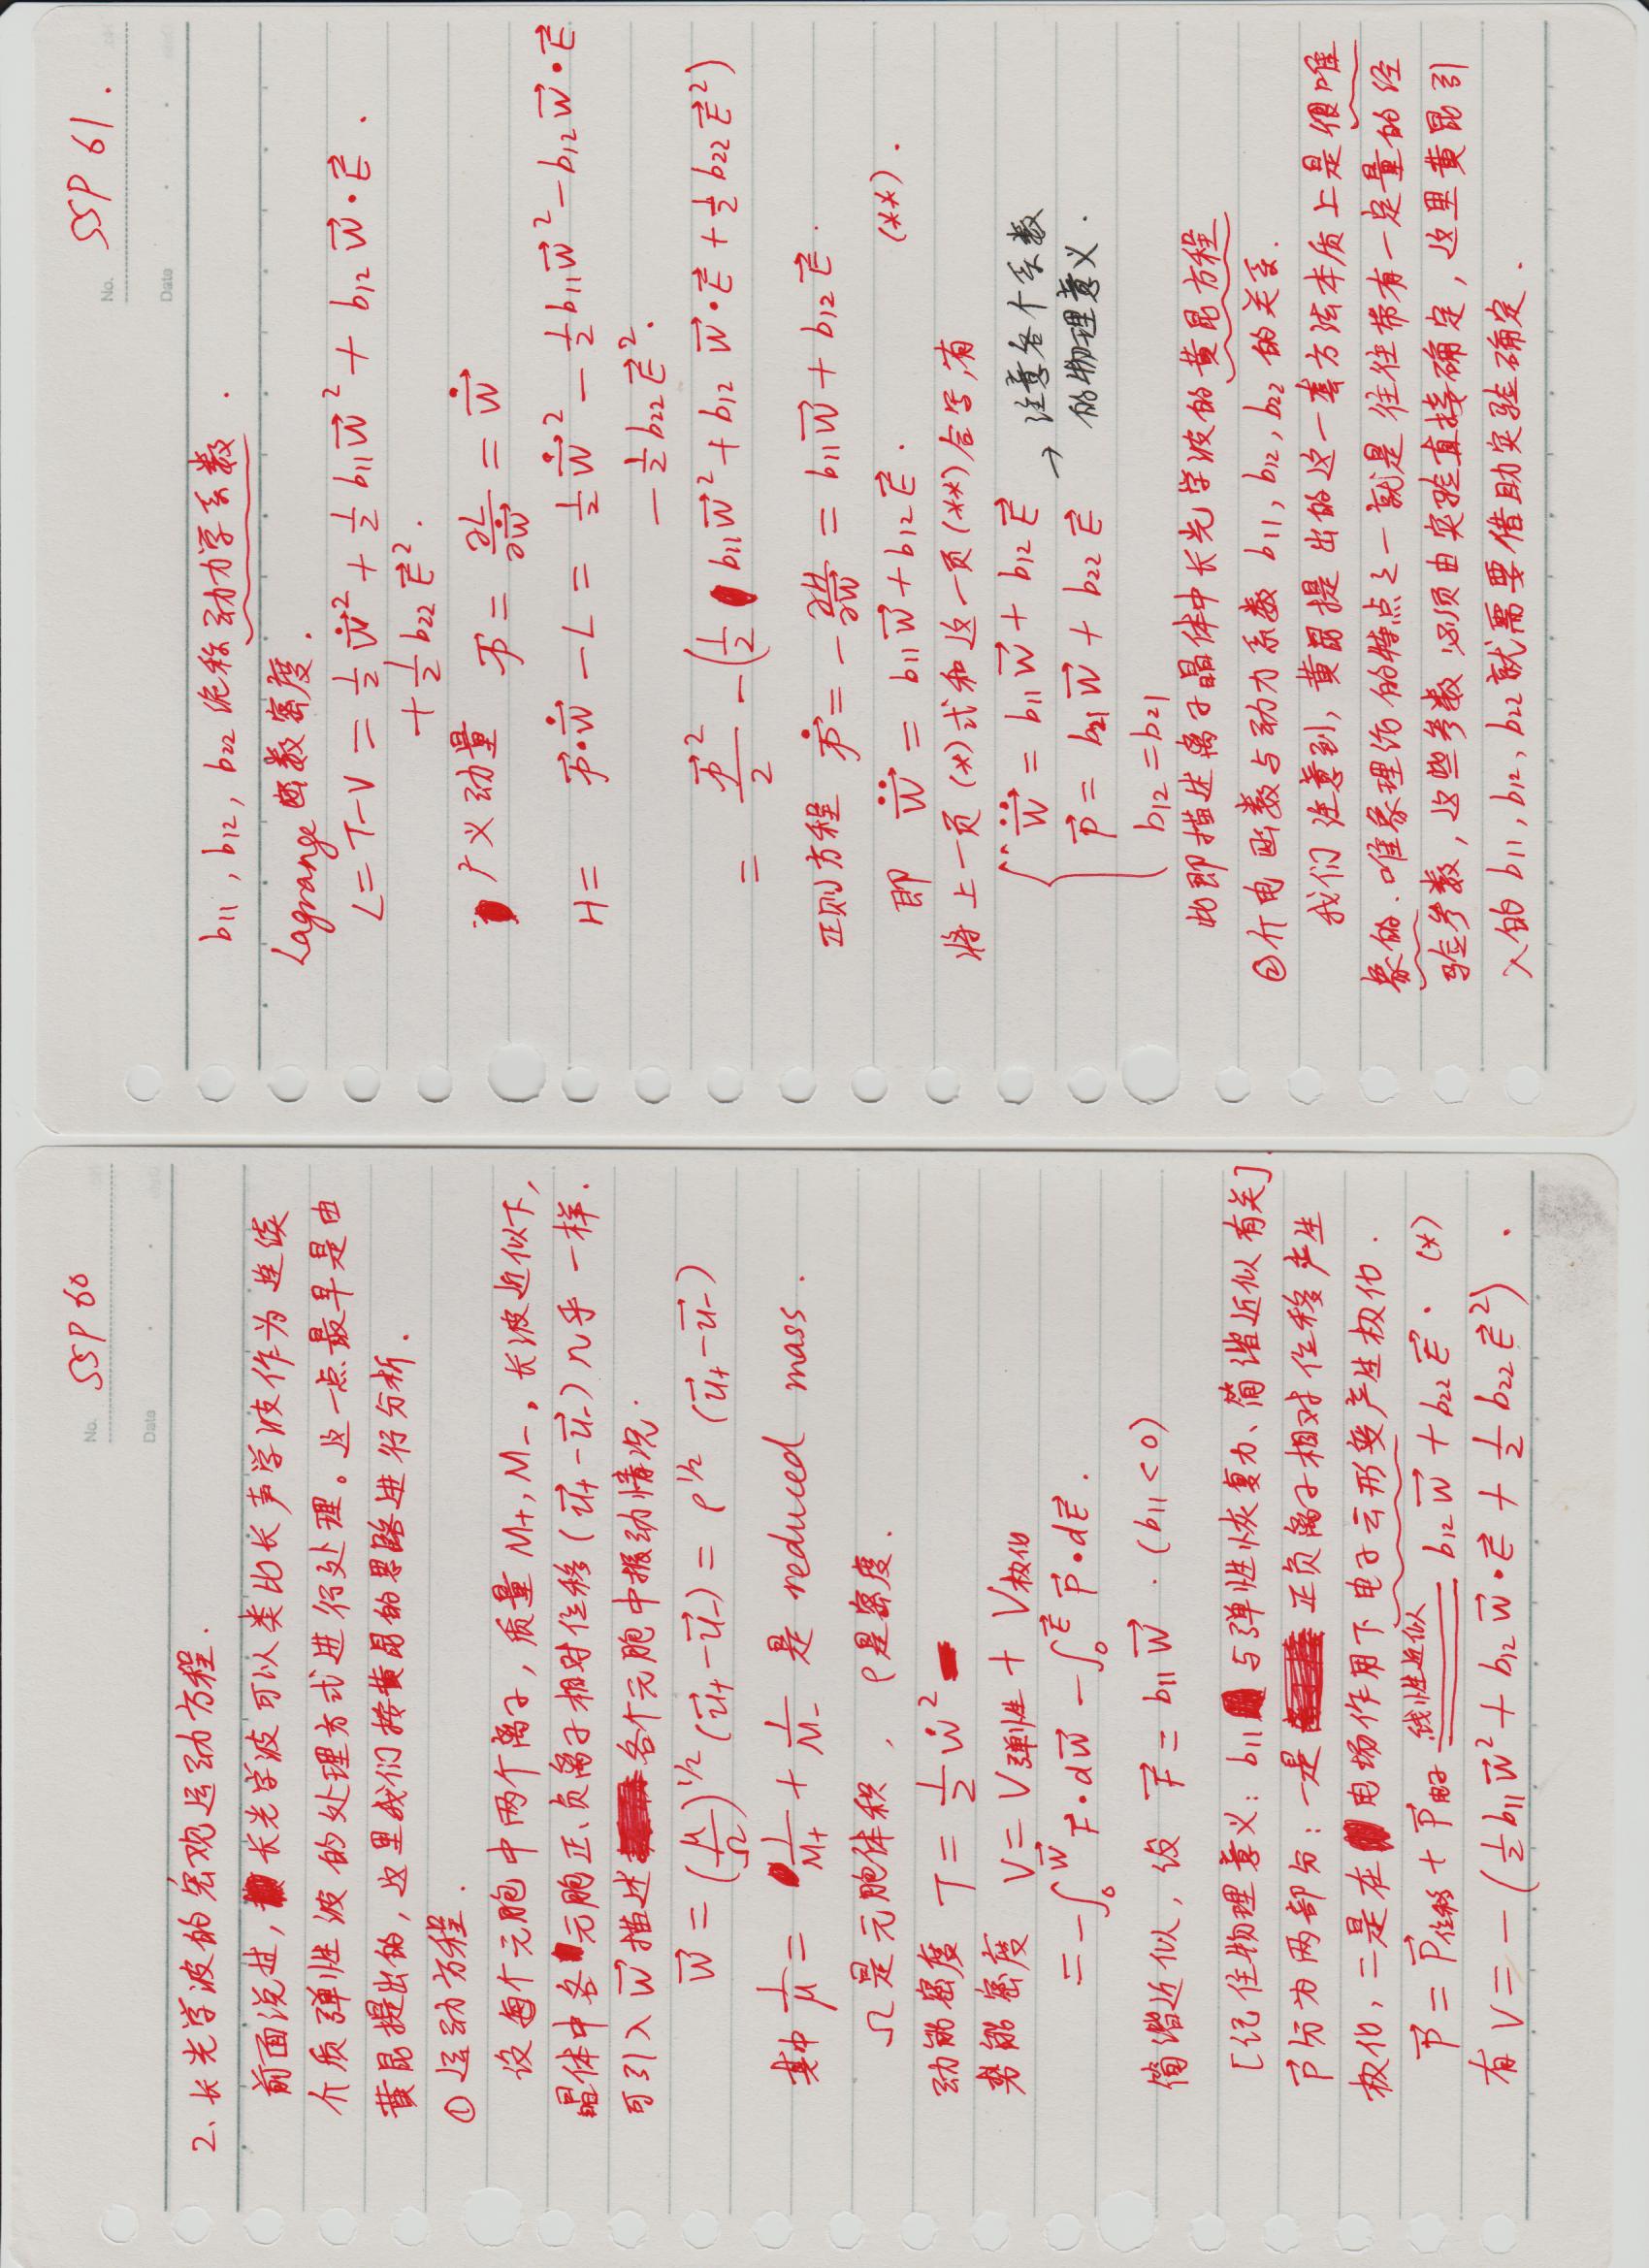 No. SSP 60
Date
2、长光学波的宏观运动方程.
前面说过, 长光学波可以类比长声学波作为连续
介质弹性波的处理方式进行处理。这一点最早是由
黄昆提出的, 这里我们按黄昆的思路进行分析.
① 运动方程.
设每个元胞中两个离子, 质量 M₊, M₋. 长波近似下,
晶体中各元胞正、负离子相对位移 (u⃗₊ - u⃗₋) 几乎一样.
可引入 W⃗ 描述 各个元胞中振动情况.
W⃗ = (μ/Ω)^{1/2} (u⃗₊ - u⃗₋) = ρ^{1/2} (u⃗₊ - u⃗₋)
其中 1/μ = 1/M₊ + 1/M₋ 是 reduced mass.
Ω 是元胞体积, ρ是密度.
动能密度 T = 1/2 Ẇ²
势能密度 V = V弹性 + V极化
= -∫₀^W⃗ F⃗·dW⃗ - ∫₀^E⃗ P⃗·dE⃗.
简谐近似, 设 F⃗ = b₁₁W⃗. (b₁₁ < 0)
[记住物理意义: b₁₁ 与弹性恢复力、简谐近似有关]
P⃗分为两部分: 一是 正负离子相对位移产生
极化, 二是在 电场作用下电子云形变产生极化.
P⃗ = P⃗位移 + P⃗电子 线性近似 b₁₂W⃗ + b₂₂E⃗. (*)
有 V = - (1/2 b₁₁W⃗² + b₁₂W⃗·E⃗ + 1/2 b₂₂E⃗²).
No. SSP 61.
Date
b₁₁, b₁₂, b₂₂ 统称动力学系数.
Lagrange 函数密度.
L = T - V = 1/2 Ẇ⃗² + 1/2 b₁₁W⃗² + b₁₂W⃗·E⃗.
+ 1/2 b₂₂E⃗².
广义动量 p⃗ = ∂L/∂Ẇ⃗ = Ẇ⃗
H = p⃗·Ẇ⃗ - L = 1/2 Ẇ⃗² - 1/2 b₁₁W⃗² - b₁₂W⃗·E⃗
- 1/2 b₂₂E⃗².
= p⃗²/2 - (1/2 b₁₁W⃗² + b₁₂W⃗·E⃗ + 1/2 b₂₂E⃗²)
正则方程 ṗ⃗ = - ∂H/∂W⃗ = b₁₁W⃗ + b₁₂E⃗.
即 Ẅ⃗ = b₁₁W⃗ + b₁₂E⃗. (**).
将上一页 (*) 式和这一页 (**) 合写, 有
Ẅ⃗ = b₁₁W⃗ + b₁₂E⃗
P⃗ = b₂₁W⃗ + b₂₂E⃗
b₁₂ = b₂₁
→ 注意各个系数
的物理意义.
此即描述离子晶体中长光学波的黄昆方程
② 介电函数与动力系数 b₁₁, b₁₂, b₂₂ 的关系.
我们注意到, 黄昆提出的这一套方法本质上是很唯
象的. 唯象理论的特点之一就是往往带有一定量的经
验参数, 这些参数必须由实验直接确定, 这里黄昆引
入的 b₁₁, b₁₂, b₂₂ 就需要借助实验确定.